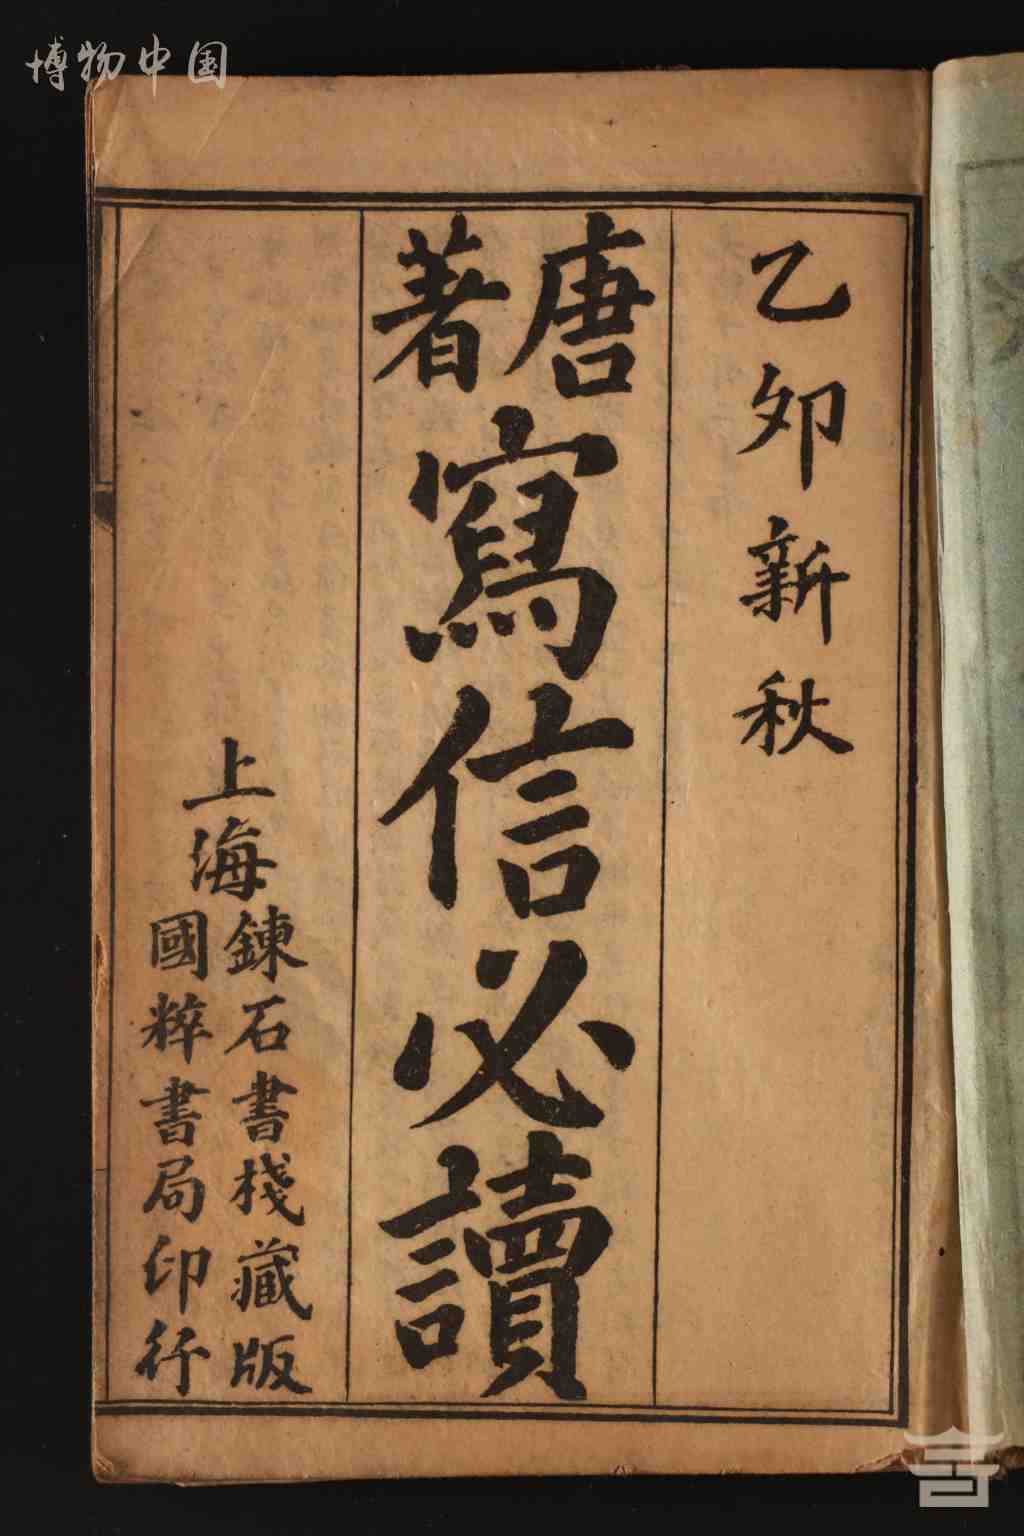 博物中国
乙夘新秋
唐著寫信必讀
上海
鍊石書棧藏版
國粹書局印行